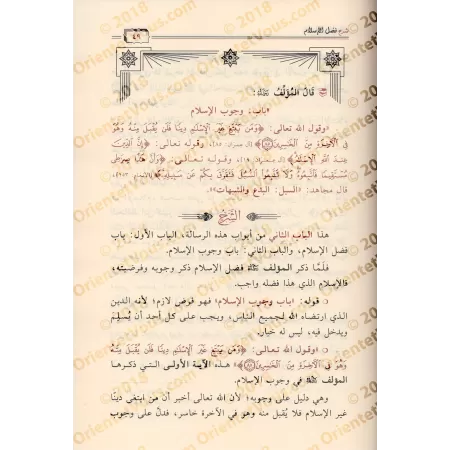 شرح فضل الإسلام
٤٩
قال المؤلف
«باب وجوب الإسلام
«وقول الله تعالى: ﴿وَمَن يَبْتَغِ غَيْرَ الْإِسْلَامِ دِينًا فَلَن يُقْبَلَ مِنْهُ وَهُوَ
فِي الْآخِرَةِ مِنَ الْخَاسِرِينَ﴾ [آل عمران: ٨٥]، وقوله تعالى: ﴿إِنَّ الدِّينَ
عِندَ اللَّهِ الْإِسْلَامُ﴾ [آل عمران: ١٩]، وقوله تعالى: ﴿وَأَنَّ هَٰذَا صِرَاطِي
مُسْتَقِيمًا فَاتَّبِعُوهُ وَلَا تَتَّبِعُوا السُّبُلَ فَتَفَرَّقَ بِكُمْ عَن سَبِيلِهِ﴾ [الأنعام: ١٥٣].
قال مجاهد: «السبل: البدع والشبهات».
الشرح
هذا الباب الثاني من أبواب هذه الرسالة، الباب الأول: باب
فضل الإسلام، والباب الثاني: باب وجوب الإسلام.
فلمَّا ذكر المؤلف فضل الإسلام ذكر وجوبه وفرضيته،
فالإسلام الذي هذا فضله واجب.
○ قوله: «باب وجوب الإسلام» فهو فرض لازم؛ لأنه الدين
الذي ارتضاه الله لجميع الناس، ويجب على كل أحد أن يُسلِمَ
ويدخل فيه، ليس له خيار.
○ «وقول الله تعالى: ﴿وَمَن يَبْتَغِ غَيْرَ الْإِسْلَامِ دِينًا فَلَن يُقْبَلَ مِنْهُ
وَهُوَ فِي الْآخِرَةِ مِنَ الْخَاسِرِينَ﴾» هذه الآية الأولى التي ذكرها
المؤلف في وجوب الإسلام.
وهي دليل على وجوبه؛ لأن الله تعالى أخبر أن من ابتغى دينًا
غير الإسلام فلا يُقبل منه وهو في الآخرة خاسر، فدلَّ على وجوب
© 2018 Orientetvous.com